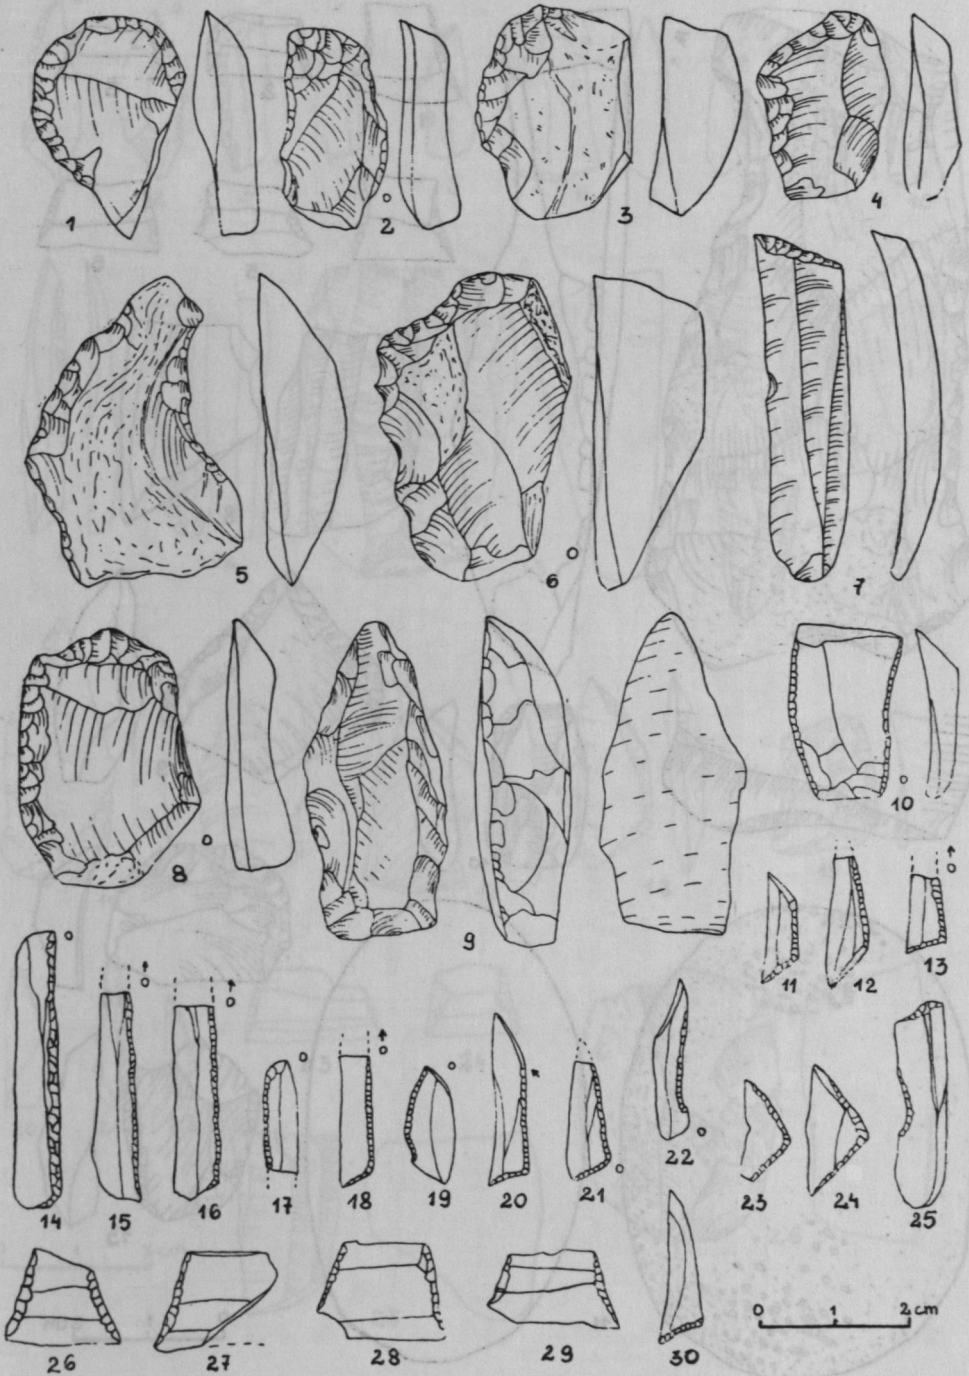 1
2
3
4
5
6
7
8
9
10
11
12
13
14
15
16
17
18
19
20
21
22
23
24
25
26
27
28
29
30
0 1 2 cm